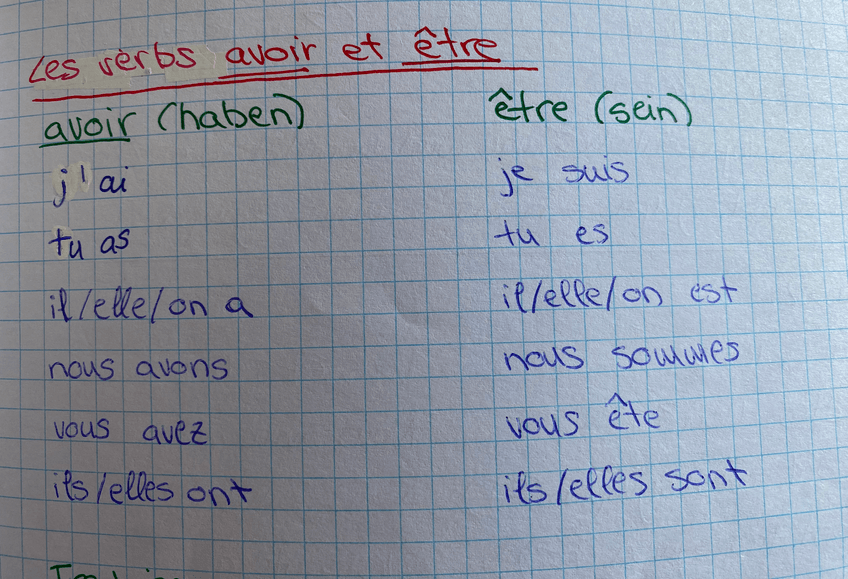 Les verbs avoir et être
avoir (haben) être (sein)
j'ai je suis
tu as tu es
il/elle/on a il/elle/on est
nous avons nous sommes
vous avez vous ête
ils/elles ont ils/elles sont